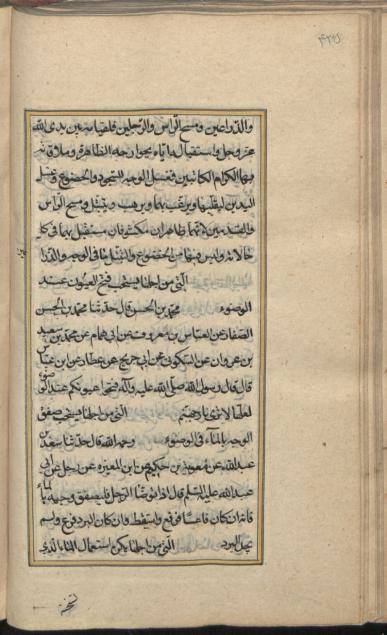 والذراعين ومسح الراس والرجلين فلقيامه بين يدى الله
عز وجل واستقباله اياه بجوارحه الظاهرة وملاقاته
بها الكرام الكاتبين فغسل الوجه للسجود والخضوع وغسل
اليدين ليقلبهما ويرغب بهما ويرهب ويتبتل ومسح الراس
والقدمين لانهما ظاهران مكشوفان مستقبل بهما فى كل
حالاته وليس فيهما من الخضوع والتبتل ما فى الوجه والذرا
التى من اجلها يستحب فتح العيون عند
الوضوء محمد بن الحسن قال حدثنا محمد بن الحسن
الصفار عن العباس بن معروف عن ابى همام عن محمد بن سعيد
بن غزوان عن السكونى عن ابن جريج عن عطا عن ابن عباس
قال قال رسول الله صلى الله عليه وآله افتحوا عيونكم عند الوضوء
لعلها لا ترى نار جهنم التى من اجلها يستحب صفق
الوجه بالماء فى الوضوء رحمه الله قال حدثنا سعد بن
عبد الله عن معوية بن حكيم عن ابن المغيرة عن رجل عن ابى
عبد الله عليه السلم قال اذا توضا الرجل فليصفق وجهه بالماء
فانه ان كان ناعسا فزع واستيقظ وان كان البرد فزع ولم
يجد البرد التى من اجلها يكره استعمال الماء الذى